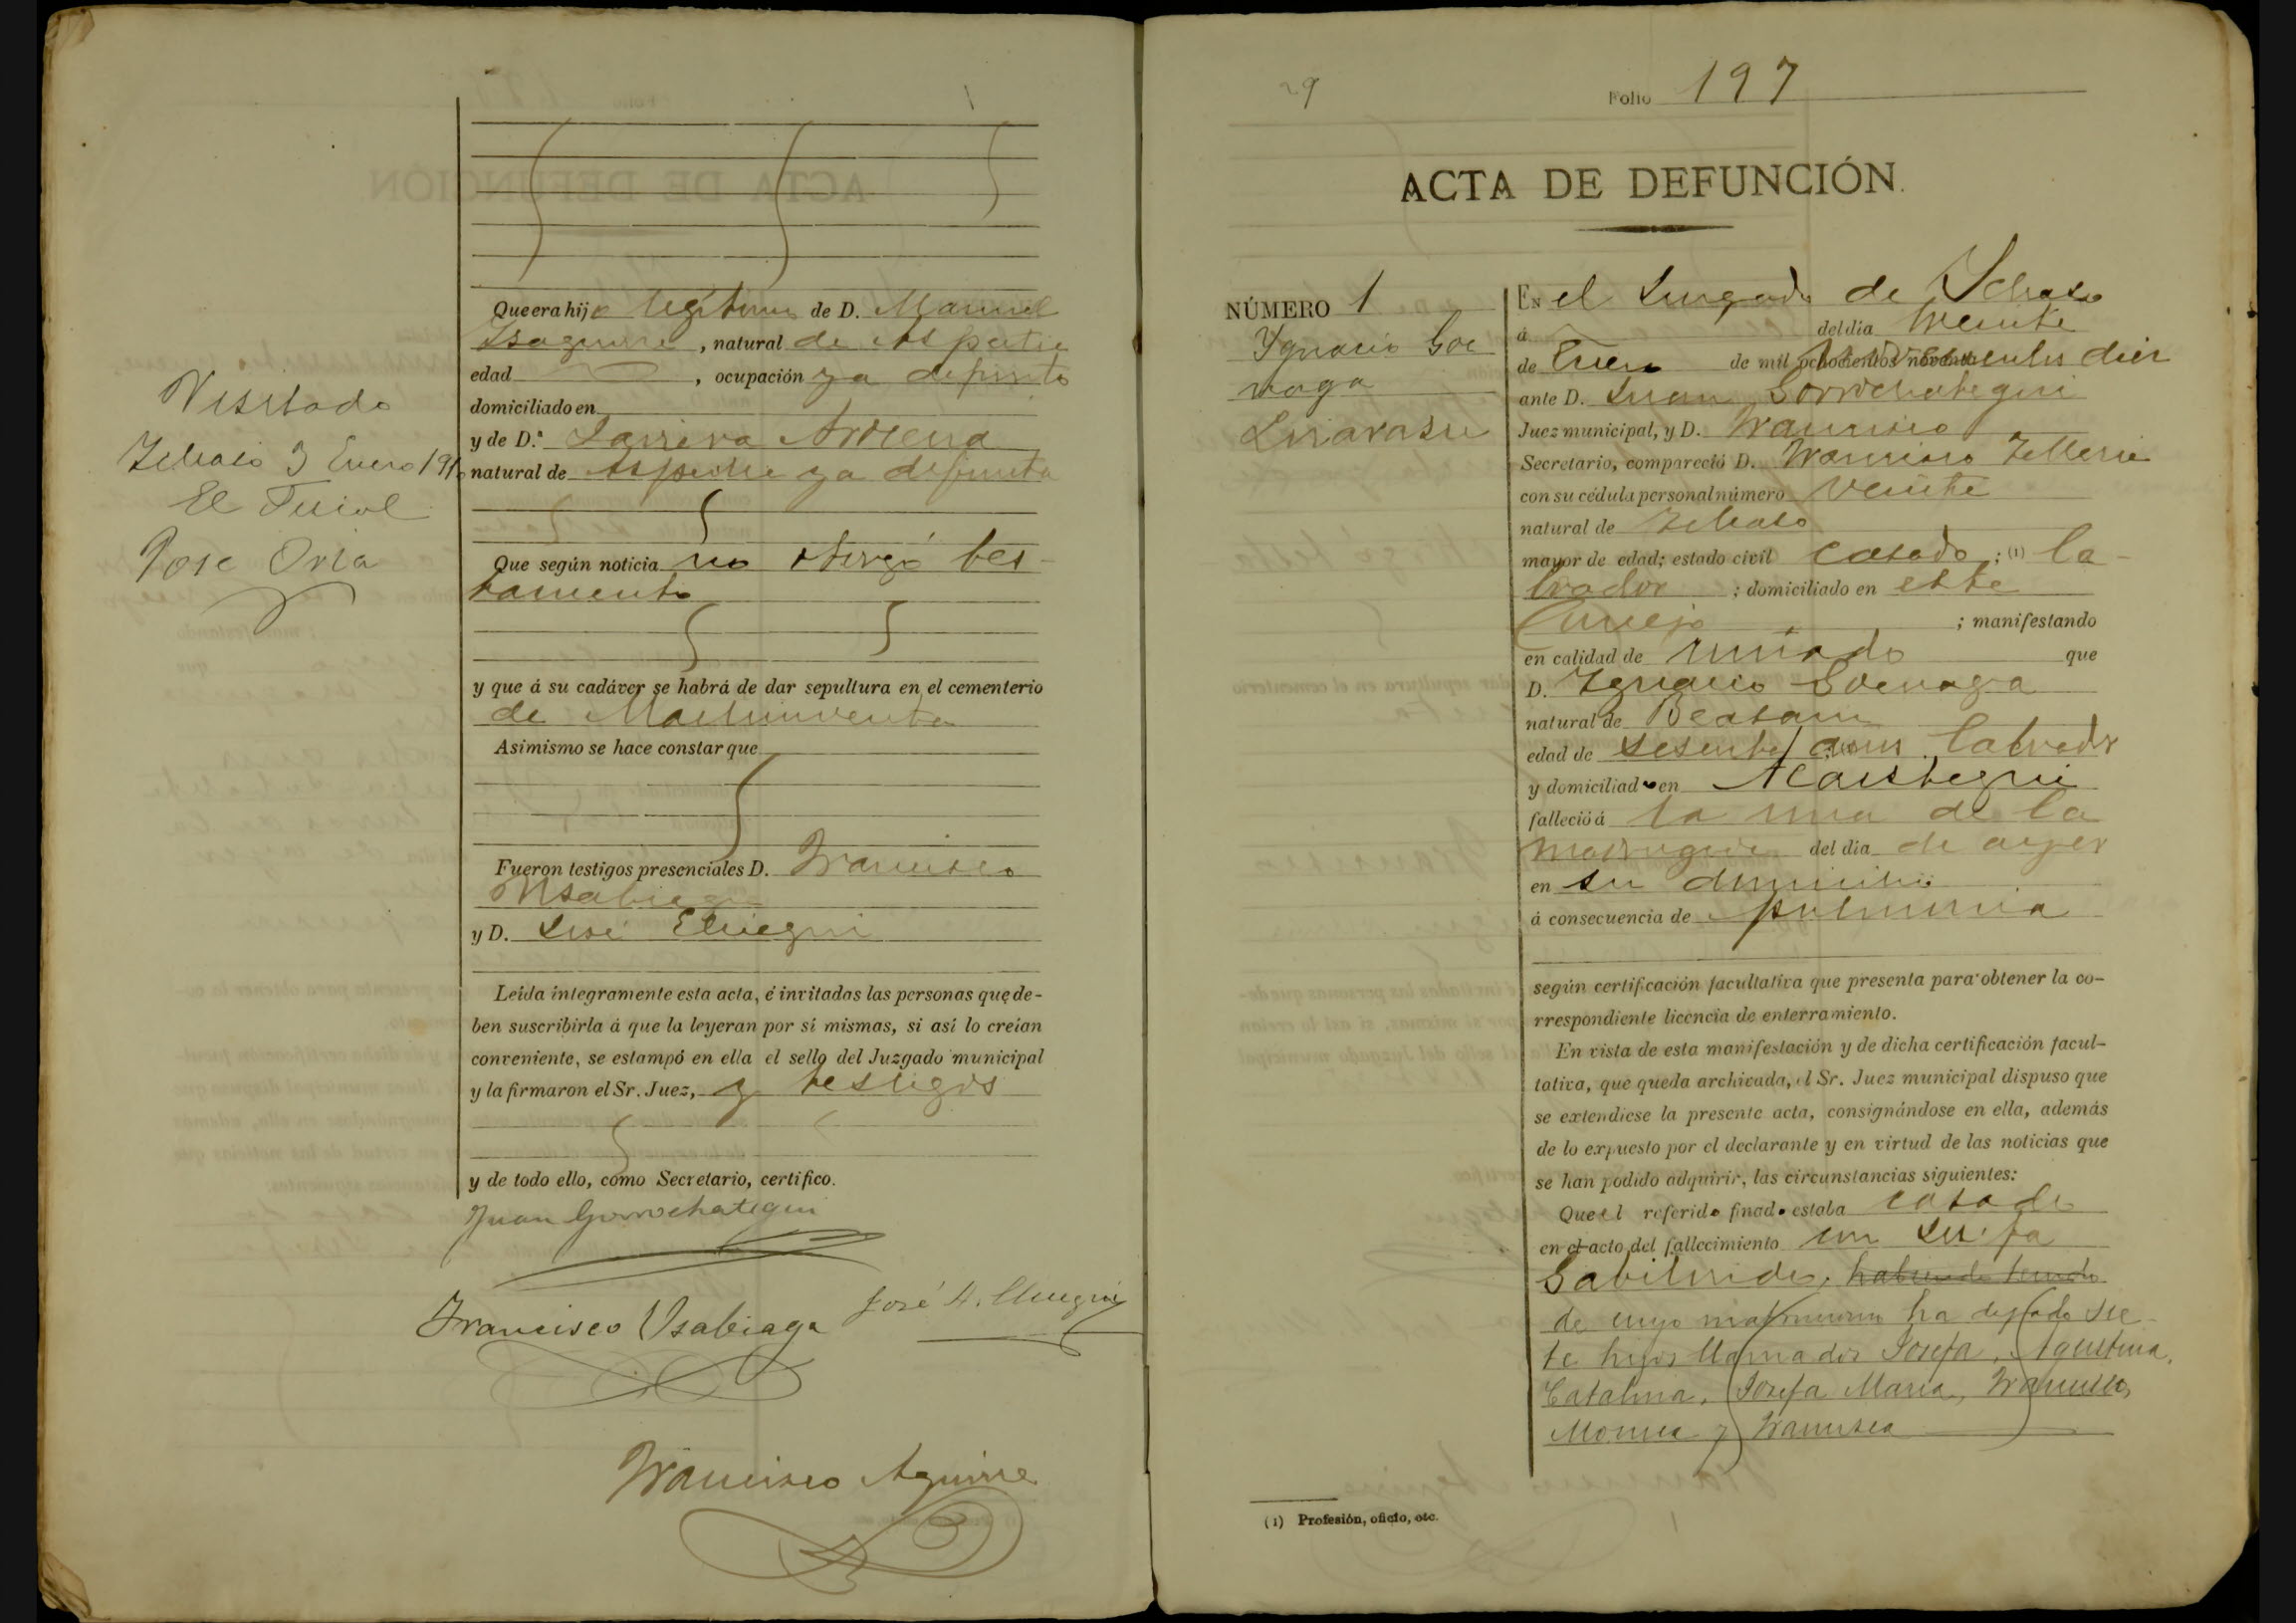 Que era hijo legitimo de D. Manuel
Ysaguirre, natural de Aspeitia
edad , ocupación ya defunto
domiciliado en
y de D.ª Arocena
natural de Aspeitia ya defunta
Que según noticia no otorgó tes-
tamento
y que á su cadáver se habrá de dar sepultura en el cementerio
de Machinventa
Asimismo se hace constar que
Fueron testigos presenciales D. Francisco
Usabiaga
y D. José Eluegui
Leída íntegramente esta acta, é invitadas las personas que de-
ben suscribirla á que la leyeran por sí mismas, si así lo creían
conveniente, se estampó en ella el sello del Juzgado municipal
y la firmaron el Sr. Juez, y testigos
y de todo ello, como Secretario, certifico.
Juan Gorrochategui
Francisco Usabiaga José A.
Francisco Aguirre
Visitado
Ichaso 3 Enero 1910
El Fiscal
Jose Oria
Folio 197
ACTA DE DEFUNCIÓN.
NÚMERO 1
Ygnacio Goe
naga
En el Jusgado de Ichaso
á del día veinte
de Enero de mil novecientos diez
ante D. Juan Gorrochategui
Juez municipal, y D. Francisco
Secretario, compareció D. Francisco Telleria
con su cédula personal número veinte
natural de Ichaso
mayor de edad; estado civil casado; (1) la-
brador; domiciliado en este
Concejo; manifestando
en calidad de que
D. Ygnacio Goenaga
natural de Beasain
edad de sesenta años labrador
y domiciliado en
falleció á la una de la
madrugada del día de ayer
en su domicilio
á consecuencia de pulmonia
según certificación facultativa que presenta para obtener la co-
rrespondiente licencia de enterramiento.
En vista de esta manifestación y de dicha certificación facul-
tativa, que queda archivada, el Sr. Juez municipal dispuso que
se extendiese la presente acta, consignándose en ella, además
de lo expuesto por el declarante y en virtud de las noticias que
se han podido adquirir, las circunstancias siguientes:
Que el referido finado estaba casado
en el acto del fallecimiento con Josefa
Gabilondo, habiendo tenido
de cuyo matrimonio ha dejado sie-
te hijos llamados Josefa, Agustina,
Catalina, Josefa Maria, Francisco,
Monica y Francisca
(1) Profesión, oficio, etc.